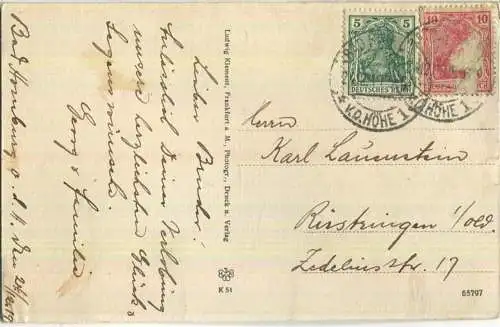 Bad Homburg v. d. H. den
Lieber Bruder!
Anlässlich Deiner Verlobung
unsere herzlichsten Glück &
Segenswünsche.
Georg & Familie
Ludwig Klement, Frankfurt a. M., Photogr., Druck u. Verlag
K 51
5
DEUTSCHES REICH
10
v.d. HÖHE 1
v.d. HÖHE 1
Herrn
Karl Lauenstein
Rüstringen i/old.
Zedeliusstr. 17
65797